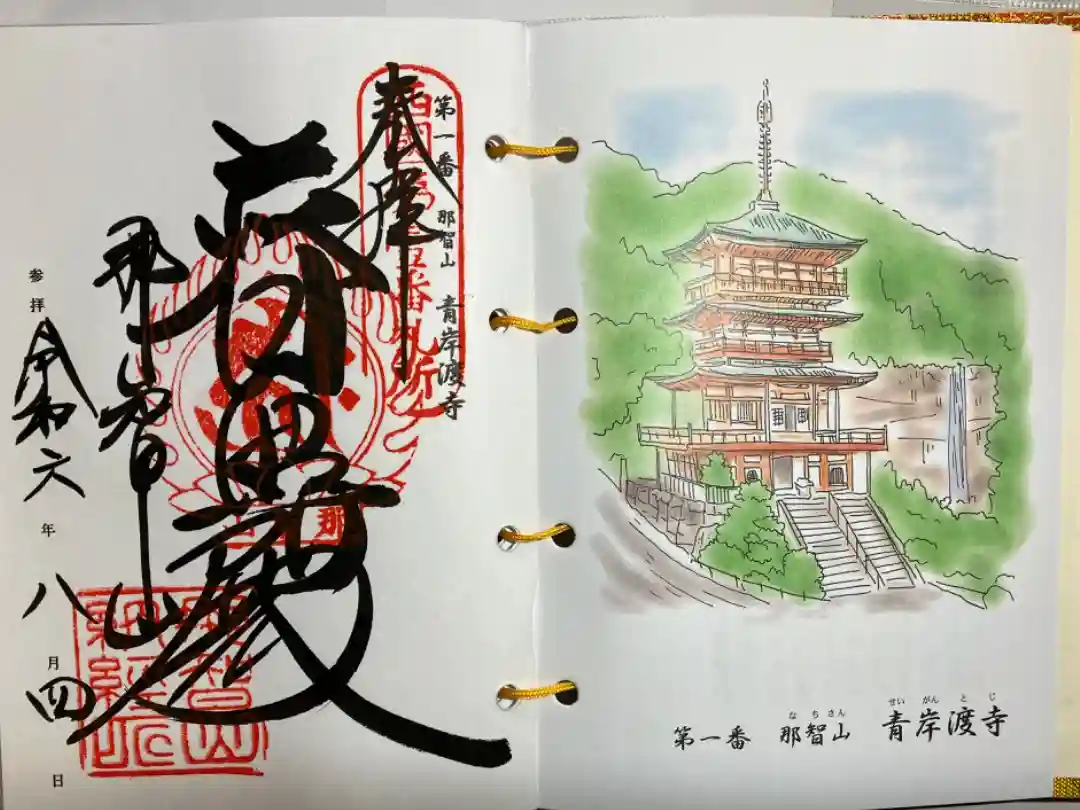 奉拝
第一番 那智山 青岸渡寺
那智山
参拝 令和六年八月四日
那智山
納経所
せいがんとじ
なちさん
第一番 那智山 青岸渡寺